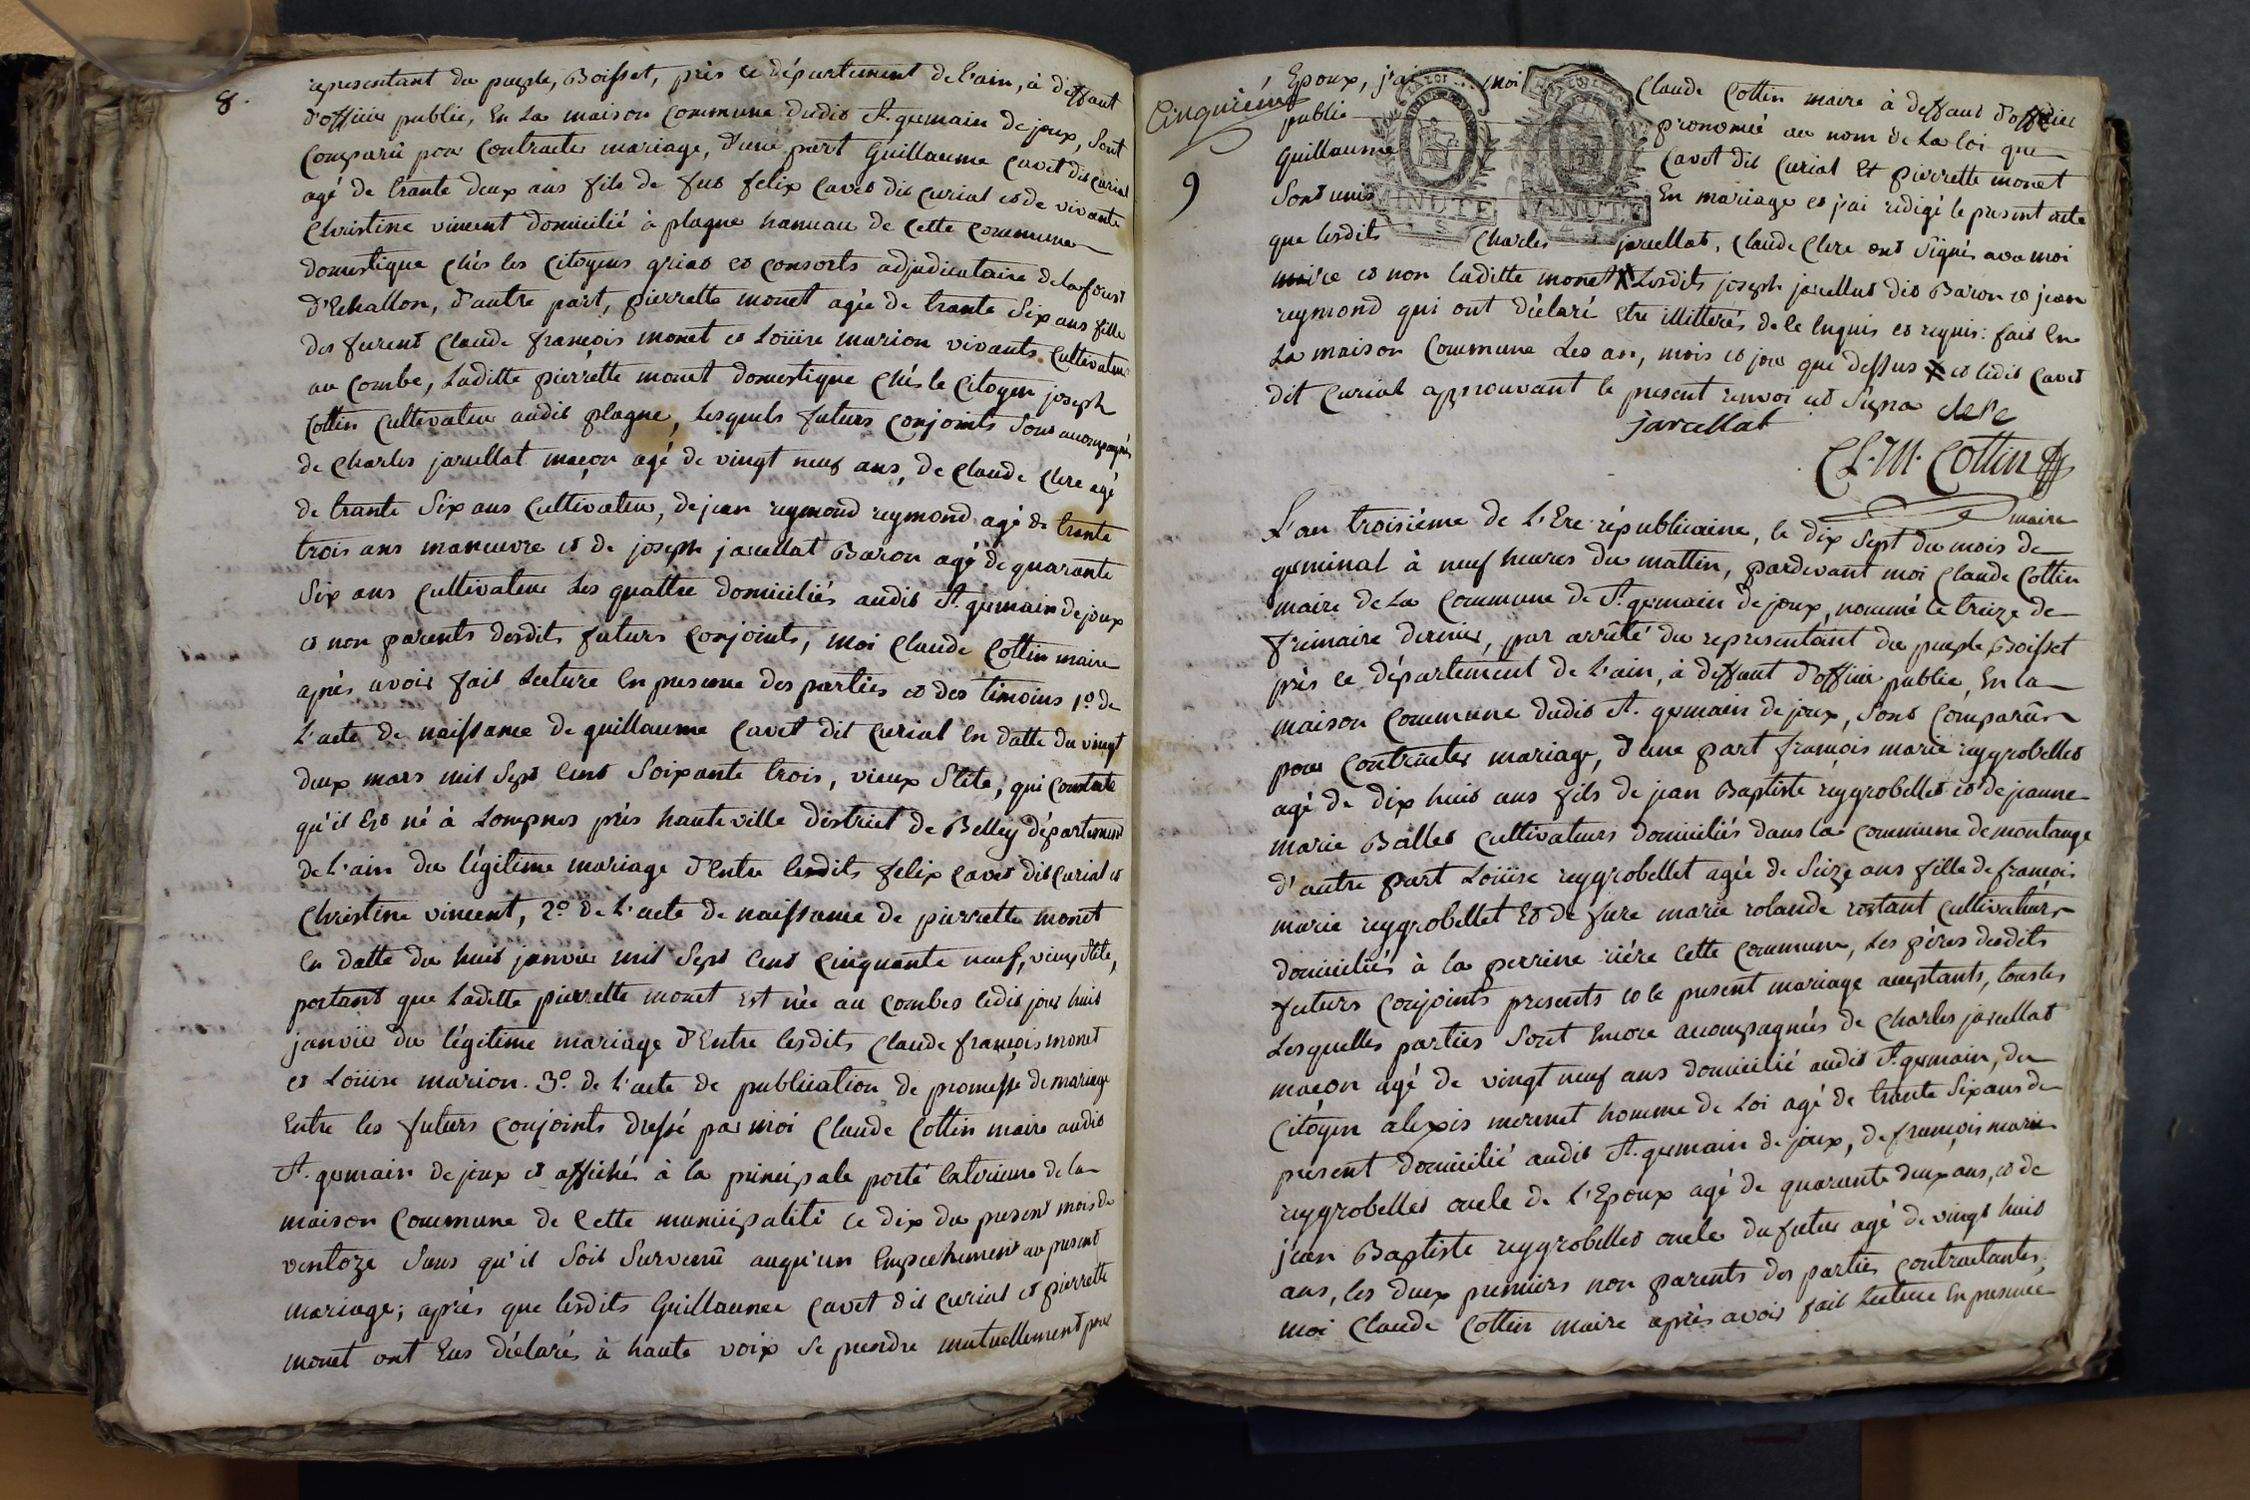 8.
representant du peuple, Boisset, près ce département de l'ain, à deffaut
d'officier public, En La maison Commune dudit St. germain de joux, Sont
Comparû pour Contracter mariage, d'une part Guillaume Cavet dit Curial
agé de trante deux ans fils de feu felix Cavet dit Curial et de vivante
Christine vincent domicilié à plagne hameau de Cette Commune
domestique Chés les Citoyens griat et Consorts adjudicataire de la forest
d'Echallon, d'autre part, pierrette monet agée de trante Six ans fille
des furent Claude françois monet et Loüise marion vivants Cultivateurs
au Combe, Laditte pierrette monet domestique Chés le Citoyen joseph
Cottin Cultivateur audit plagne, Lesquels futurs Conjoints Sont accompagnés
de Charles jacullat maçon agé de vingt neuf ans, de Claude Clere agé
de trante Six ans Cultivateur, de jean reymond reymond agé de trante
trois ans maneuvre et de joseph jacullat Baron agé de quarante
Six ans Cultivateur Les quattre domiciliés audit St. germain de joux
et non parents desdits futurs Conjoints, moi Claude Cottin maire
après avoir fait Lecture En presence des parties et des témoins 1º. de
L'acte de naissance de guillaume Cavet dit Curial En datte du vingt
deux mars mil Sept Cent Soixante trois, vieux Stile, qui Constate
qu'il Est né à Lompnes près hauteville district de Belley département
de L'ain du légitime mariage d'Entre lesdits felix Cavet dit Curial et
Christine vincent, 2º. de L'acte de naissance de pierrette monet
En datte du huit janvier mil Sept Cent Cinquante neuf, vieux Stile,
portant que Laditte pierrette monet Est née au Combes ledit jour huit
janvier du légitime mariage d'Entre lesdits Claude françois monet
et Loüise marion. 3º. de L'acte de publication de promesse de mariage
Entre les futurs Conjoints dressé par moi Claude Cottin maire audit
St. germain de joux et affichés à la principale porte Exterieure de la
maison Commune de Cette municipalité Ce dix du present mois de
ventoze Sans qu'il Soit Survenû auqu'un Empechement au present
mariage; après que lesdits Guillaume Cavet dit Curial et pierrette
monet ont Eus déclarés à haute voix Se prendre mutuellement pour
Cinquième
9
Epoux, j'ai moi Claude Cottin maire à deffaut d'officier
public prononcé au nom de La loi que
Guillaume Cavet dit Curial Et pierrette monet
Sont unis En mariage et j'ai rédigé le present acte
LA LOI
MINUTE MINUTE
que lesdits Charles jacullat, Claude Clere ont Signés avec moi
maire et non laditte monet X Lesdits joseph jacullat dit Baron et jean
reymond qui ont déclaré Etre illitterés de Ce Enquis et requis: fait En
La maison Commune Les an, mois et jour que dessus X et ledit Cavet
dit Curial approuvant le present renvoi ut Supra Clere
jacullat
Cl. M. Cottin
maire
L'an troisième de L'Ere républicaine, le dix Sept du mois de
germinal à neuf heures du mattin, pardevant moi Claude Cottin
maire de La Commune de St. germain de joux, nommé le treize de
frimaire dernier, par arrêté du representant du peuple Boisset
près ce département de L'ain, à deffaut d'officier public, En la
maison Commune dudit St. germain de joux, Sont Comparûs
pour Contracter mariage, d'une part françois marie reygrobellet
agé de dix huit ans fils de jean Baptiste reygrobellet et de jeanne
marie Ballet Cultivateurs domiciliés dans la Commune de montange
d'autre part Loüise reygrobellet agée de Seize ans fille de françois
marie reygrobellet Et de fure marie rolande rostant Cultivateurs
domiciliés à la perrine rière Cette Commune, Les pères desdits
futurs Conjoints presents et le present mariage acceptants, tous les
Lesquelles parties Sont Encore accompagnées de Charles jacullat
maçon agé de vingt neuf ans domicilié audit St. germain, du
Citoyen alexis mermet homme de Loi agé de trante Six ans de
present domicilié audit St. germain de joux, de françois marie
reygrobellet oncle de L'Epoux agé de quarante deux ans, et de
jean Baptiste reygrobellet oncle du futur agé de vingt huit
ans, les deux premiers non parents des parties Contractantes,
moi Claude Cottin maire après avoir fait Lecture En presence